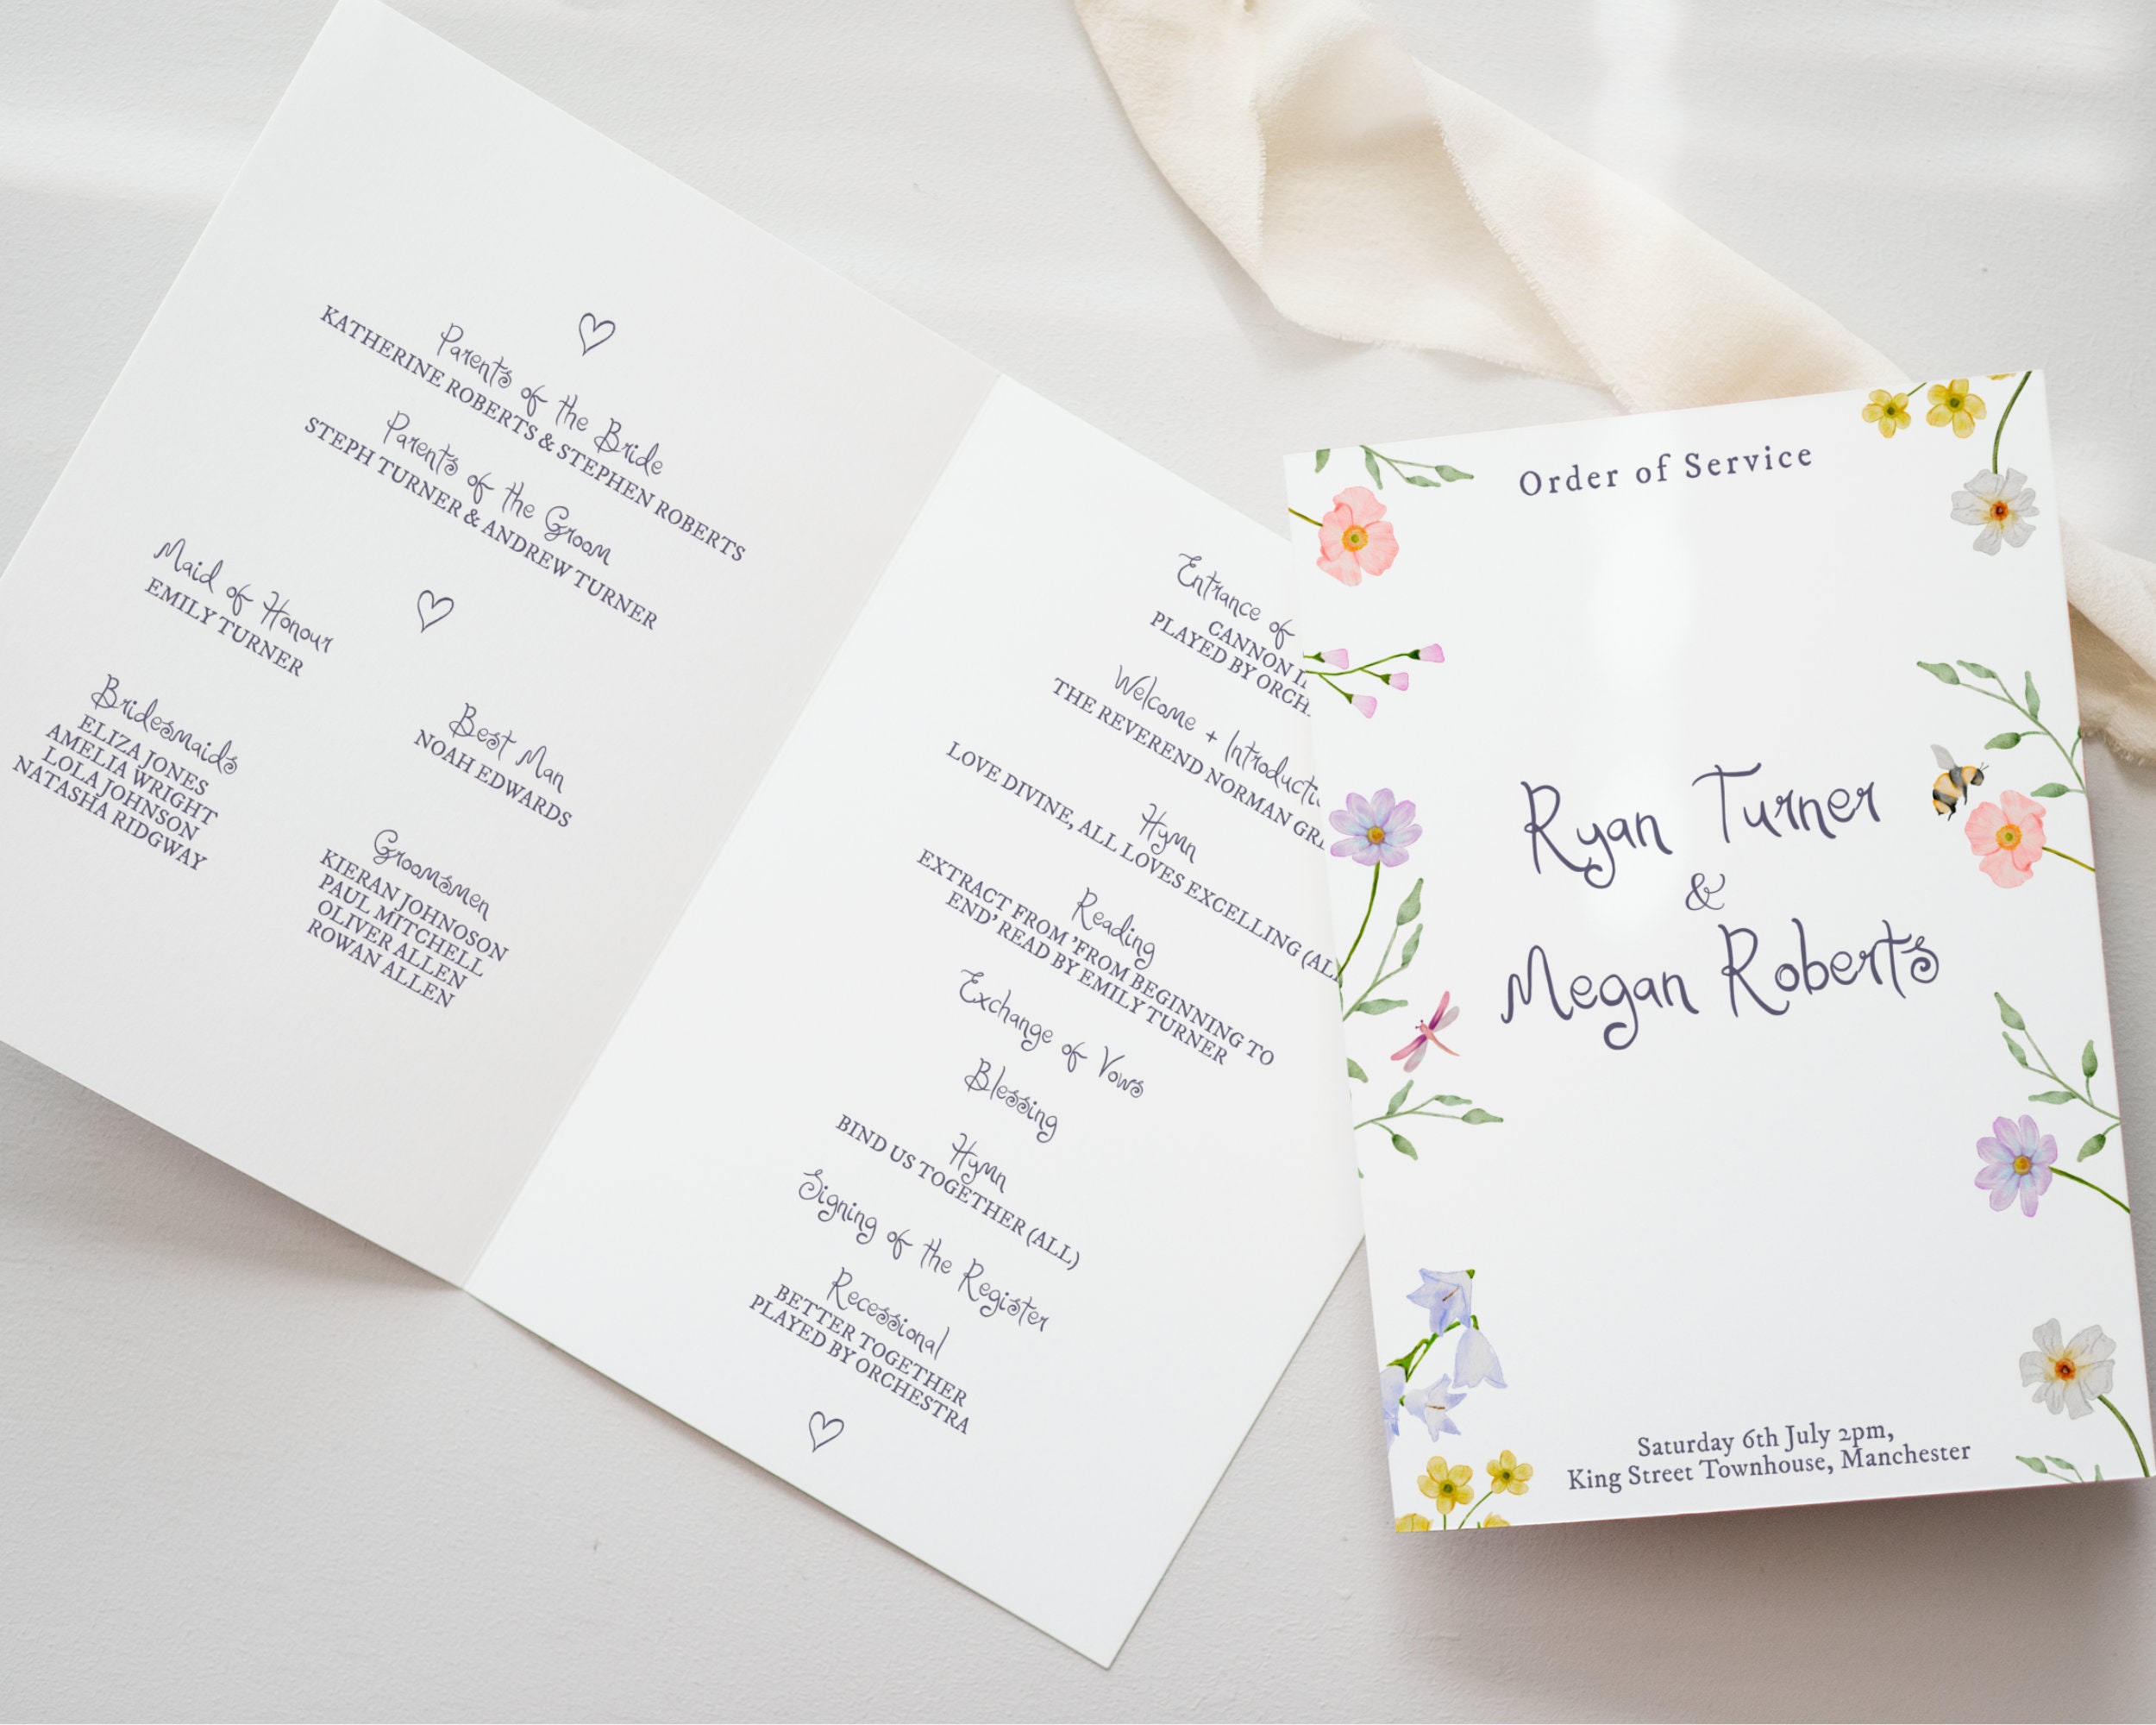 Parents of the Bride
KATHERINE ROBERTS & STEPHEN ROBERTS
Parents of the Groom
STEPH TURNER & ANDREW TURNER
Maid of Honour
EMILY TURNER
Bridesmaids
ELIZA JONES
AMELIA WRIGHT
LOLA JOHNSON
NATASHA RIDGWAY
Best Man
NOAH EDWARDS
Groomsmen
KIERAN JOHNOSON
PAUL MITCHELL
OLIVER ALLEN
ROWAN ALLEN
Entrance of
CANNON
PLAYED BY
Welcome + 
THE REVEREND NORMAN
Hymn
LOVE DIVINE, ALL LOVES EXCELLING
Reading
EXTRACT FROM 'FROM BEGINNING TO
END' READ BY EMILY TURNER
Exchange of Vows
Blessing
Hymn
BIND US TOGETHER (ALL)
Signing of the Register
Recessional
BETTER TOGETHER
PLAYED BY ORCHESTRA
Order of Service
Ryan Turner
&
Megan Roberts
Saturday 6th July 2pm,
King Street Townhouse, Manchester